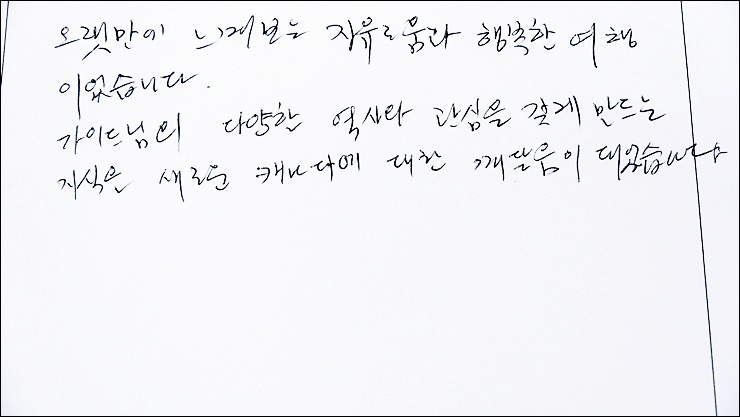 오랫만에 느껴보는 자유로움과 행복한 여행
이었습니다.
가이드님의 다양한 역사와 관심을 갖게 만드는
지식은 새로운 캐나다에 대한 깨달음이 되었습니다